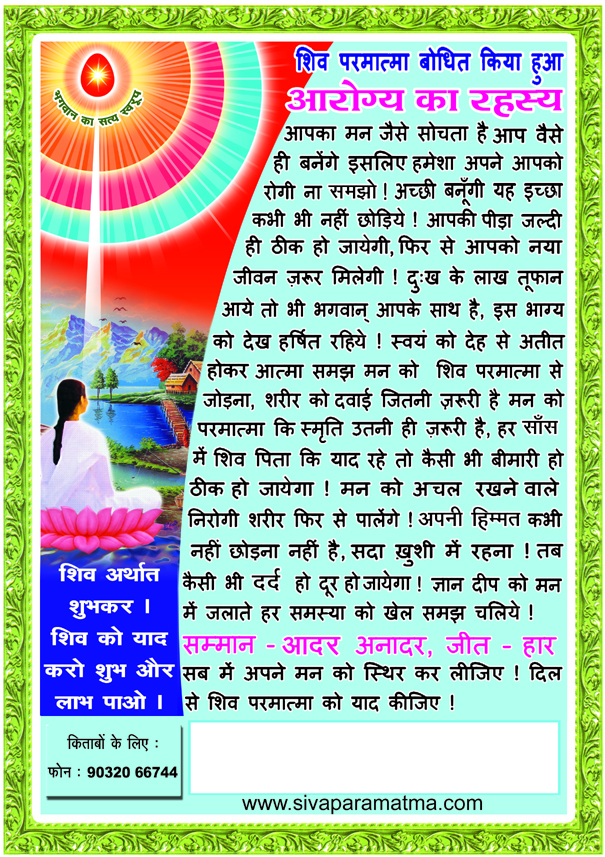 शिव परमात्मा बोधित किया हुआ
आरोग्य का रहस्य
भगवान का सत्य स्वरूप
आपका मन जैसे सोचता है आप वैसे
ही बनेंगे इसलिए हमेशा अपने आपको
रोगी ना समझो ! अच्छी बनूँगी यह इच्छा
कभी भी नहीं छोड़िये ! आपकी पीड़ा जल्दी
ही ठीक हो जायेगी, फिर से आपको नया
जीवन ज़रूर मिलेगी ! दुःख के लाख तूफान
आये तो भी भगवान् आपके साथ है, इस भाग्य
को देख हर्षित रहिये ! स्वयं को देह से अतीत
होकर आत्मा समझ मन को शिव परमात्मा से
जोड़ना, शरीर को दवाई जितनी ज़रूरी है मन को
परमात्मा कि स्मृति उतनी ही ज़रूरी है, हर साँस
में शिव पिता कि याद रहे तो कैसी भी बीमारी हो
ठीक हो जायेगा ! मन को अचल रखने वाले
निरोगी शरीर फिर से पालेंगे ! अपनी हिम्मत कभी
नहीं छोड़ना नहीं है, सदा ख़ुशी में रहना ! तब
कैसी भी दर्द हो दूर हो जायेगा ! ज्ञान दीप को मन
में जलाते हर समस्या को खेल समझ चलिये !
सम्मान - आदर अनादर, जीत - हार
सब में अपने मन को स्थिर कर लीजिए ! दिल
से शिव परमात्मा को याद कीजिए !
शिव अर्थात
शुभकर ।
शिव को याद
करो शुभ और
लाभ पाओ ।
किताबों के लिए :
फोन : 90320 66744
www.sivaparamatma.com